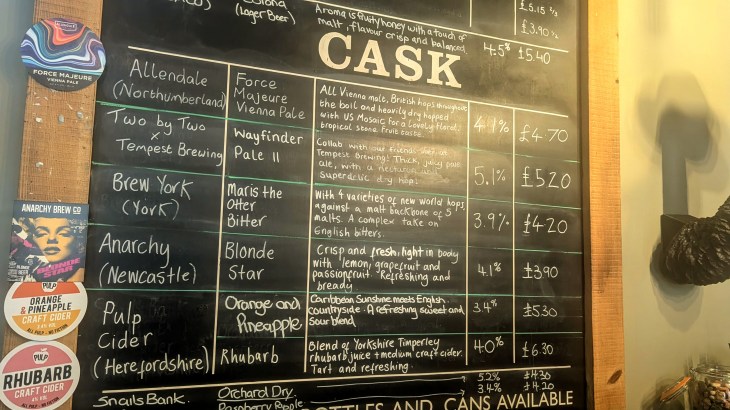 (Lager Beer)
Aroma is fruity honey with a touch of
malt, flavour crisp and balanced
4.5% £5.40
£5.15
£3.90
CASK
Allendale
(Northumberland)
Force
Majeure
Vienna Pale
All Vienna malt, British hops throughout
the boil and heavily dry hopped
with US Mosaic for a Lovely floral,
tropical stone fruit taste.
4.1%
£4.70
Two by Two
x
Tempest Brewing
Wayfinder
Pale II
Collab with our friends over at
Tempest Brewing! Thick, juicy pale
ale, with a
Superdelic dry hop!
5.1%
£5.20
Brew York
(York)
Maris the
Otter
Bitter
With 4 varieties of new world hops
against a malt backbone of 5
malts. A complex take on
English bitters.
3.9%
£4.20
Anarchy
(Newcastle)
Blonde
Star
Crisp and fresh, light in body
with lemon, grapefruit and
passionfruit. Refreshing and
bready
4.1%
£3.90
Pulp
Cider
(Herefordshire)
Orange and
Pineapple
Caribbean Sunshine meets English
countryside. A refreshing sweet and
sour blend
3.4%
£5.30
Rhubarb
Blend of Yorkshire Timperley
rhubarb juice + medium craft cider.
Tart and refreshing.
4.0%
£6.30
Snails Bank
Orchard Dry
5.2% £4.30
Raspberry Ripple
3.4% £4.20
BOTTLES AND CANS AVAILABLE
FORCE MAJEURE
VIENNA PALE
ANARCHY BREW CO
BLONDE
STAR
PULP
ORANGE &
PINEAPPLE
CRAFT CIDER
PULP
RHUBARB
CRAFT CIDER
4% VOL